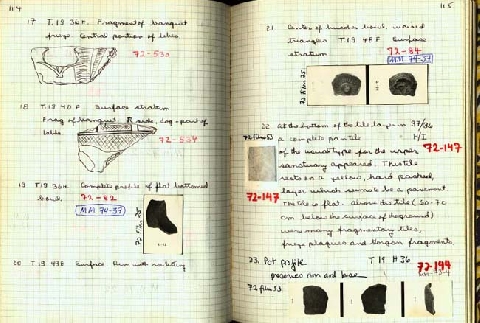 114
17 T.19 36F. Fragment of banquet
frieze. Central portion of lekis
72-530
18 T.19 40F Surface stratum
Frag of banquet. R side, dog - part of
lekis
72-534
19 T.19 36H Complete profile of flat bottomed
bowl. 72-82
MM 74-35
20 T.19 43F Surface Rim with
115
21 Center of bowl, incised
triangles T.19 45F Surface
stratum 72-84
72 film 25
22 At the bottom of the tile layer in 37/36
72 film 23 a complete pan tile H/I
of the usual type for the upper 72-147
sanctuary appeared. This tile
rests on a yellow, hard packed,
layer which seems to be a pavement
72-147 The tile is flat. Above the tile (50-70
cm. below the surface of the ground)
were many fragmentary tiles,
frieze plaques and Gorgon fragments.
23. Pot profile T 19 H 36
preserved rim and base 72-194
72 film 23